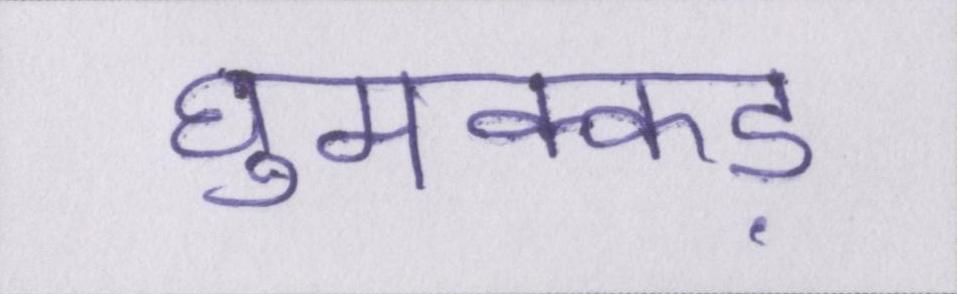 घुमक्कड़